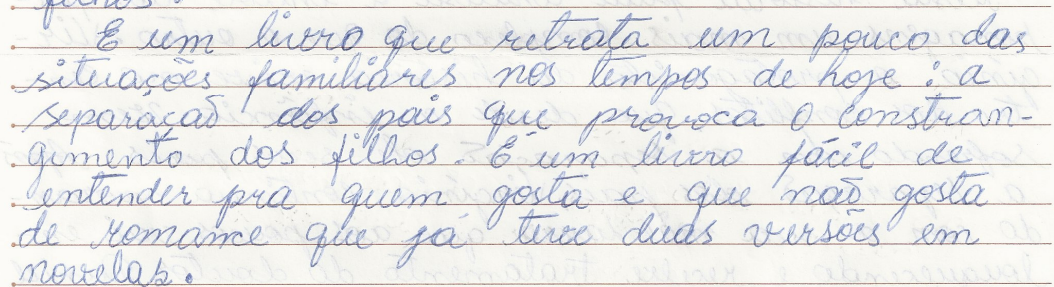 filhos.
É um livro que retrata um pouco das
situações familiares nos tempos de hoje: a
separação dos pais que provoca o constran-
gimento dos filhos. É um livro fácil de
entender pra quem gosta e que não gosta
de romance que já teve duas versões em
novelas.